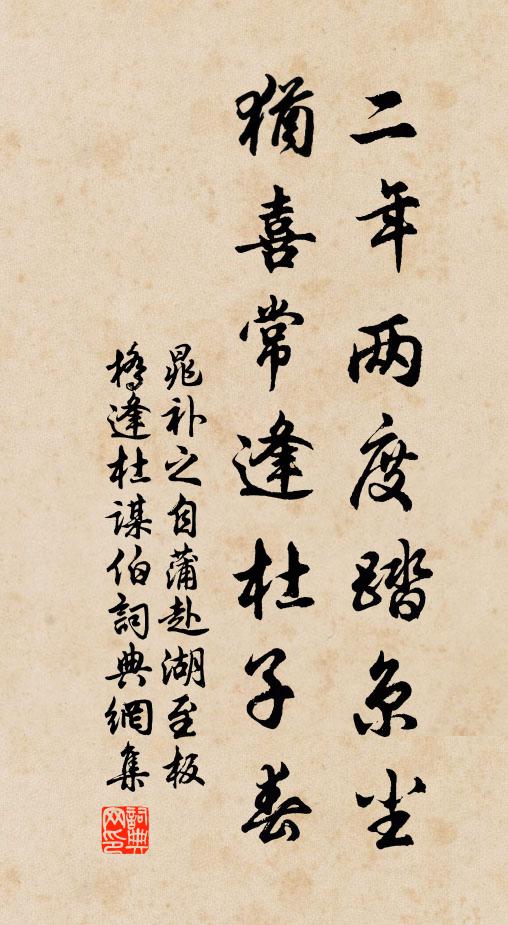 二年两度踏京尘
犹喜常逢杜子春
晁补之自蒲赴湖至板
桥逢杜谋伯词典网集
词典网印